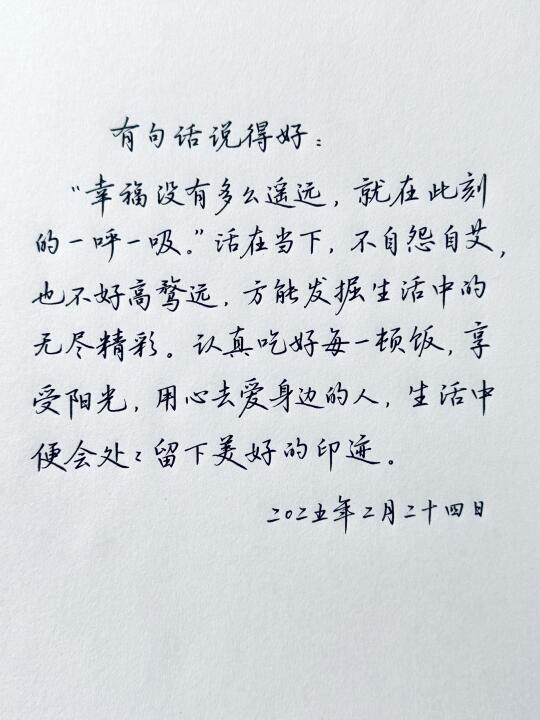 有句话说得好：
“幸福没有多么遥远，就在此刻
的一呼一吸。”活在当下，不自怨自艾，
也不好高骛远，方能发掘生活中的
无尽精彩。认真吃好每一顿饭，享
受阳光，用心去爱身边的人，生活中
便会处々留下美好的印迹。
二〇二五年二月二十四日